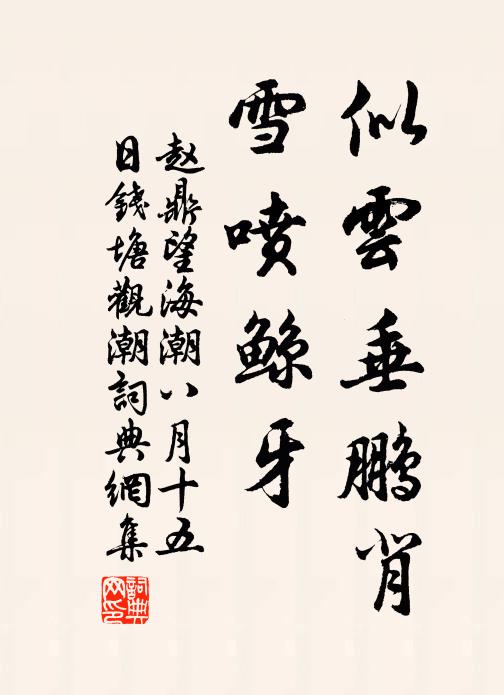 似雲垂鵬背
雪噴鯨牙
赵鼎望海潮八月十五
日錢塘觀潮詞典網集
詞典
网印